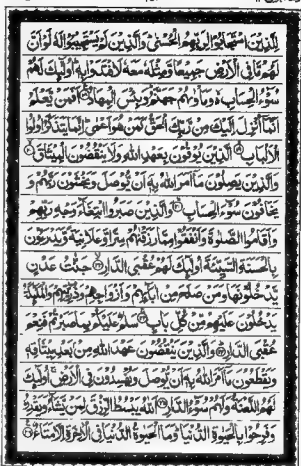 لِلَّذِيْنَ اسْتَجَابُوْا لِرَبِّهِمُ الْحُسْنٰى وَالَّذِيْنَ لَمْ يَسْتَجِيْبُوْا لَهٗ لَوْ اَنَّ
لَهُمْ مَّا فِى الْاَرْضِ جَمِيْعًا وَّمِثْلَهٗ مَعَهٗ لَافْتَدَوْا بِهٖ اُولٰٓئِكَ لَهُمْ
سُوْٓءُ الْحِسَابِ وَمَاْوٰىهُمْ جَهَنَّمُ وَبِئْسَ الْمِهَادُ اَفَمَنْ يَّعْلَمُ
اَنَّمَآ اُنْزِلَ اِلَيْكَ مِنْ رَّبِّكَ الْحَقُّ كَمَنْ هُوَ اَعْمٰى اِنَّمَا يَتَذَكَّرُ اُولُوا
الْاَلْبَابِ الَّذِيْنَ يُوْفُوْنَ بِعَهْدِ اللّٰهِ وَلَا يَنْقُضُوْنَ الْمِيْثَاقَ
وَالَّذِيْنَ يَصِلُوْنَ مَآ اَمَرَ اللّٰهُ بِهٖٓ اَنْ يُّوْصَلَ وَيَخْشَوْنَ رَبَّهُمْ وَ
يَخَافُوْنَ سُوْٓءَ الْحِسَابِ وَالَّذِيْنَ صَبَرُوا ابْتِغَآءَ وَجْهِ رَبِّهِمْ
وَاَقَامُوا الصَّلٰوةَ وَاَنْفَقُوْا مِمَّا رَزَقْنٰهُمْ سِرًّا وَّعَلَانِيَةً وَّيَدْرَءُوْنَ
بِالْحَسَنَةِ السَّيِّئَةَ اُولٰٓئِكَ لَهُمْ عُقْبَى الدَّارِ جَنّٰتُ عَدْنٍ
يَّدْخُلُوْنَهَا وَمَنْ صَلَحَ مِنْ اٰبَآئِهِمْ وَاَزْوَاجِهِمْ وَذُرِّيّٰتِهِمْ وَالْمَلٰٓئِكَةُ
يَدْخُلُوْنَ عَلَيْهِمْ مِّنْ كُلِّ بَابٍ سَلٰمٌ عَلَيْكُمْ بِمَا صَبَرْتُمْ فَنِعْمَ
عُقْبَى الدَّارِ وَالَّذِيْنَ يَنْقُضُوْنَ عَهْدَ اللّٰهِ مِنْۢ بَعْدِ مِيْثَاقِهٖ
وَيَقْطَعُوْنَ مَآ اَمَرَ اللّٰهُ بِهٖٓ اَنْ يُّوْصَلَ وَيُفْسِدُوْنَ فِى الْاَرْضِ اُولٰٓئِكَ
لَهُمُ اللَّعْنَةُ وَلَهُمْ سُوْٓءُ الدَّارِ اَللّٰهُ يَبْسُطُ الرِّزْقَ لِمَنْ يَّشَآءُ وَيَقْدِرُ
وَفَرِحُوْا بِالْحَيٰوةِ الدُّنْيَا وَمَا الْحَيٰوةُ الدُّنْيَا فِى الْاٰخِرَةِ اِلَّا مَتَاعٌ